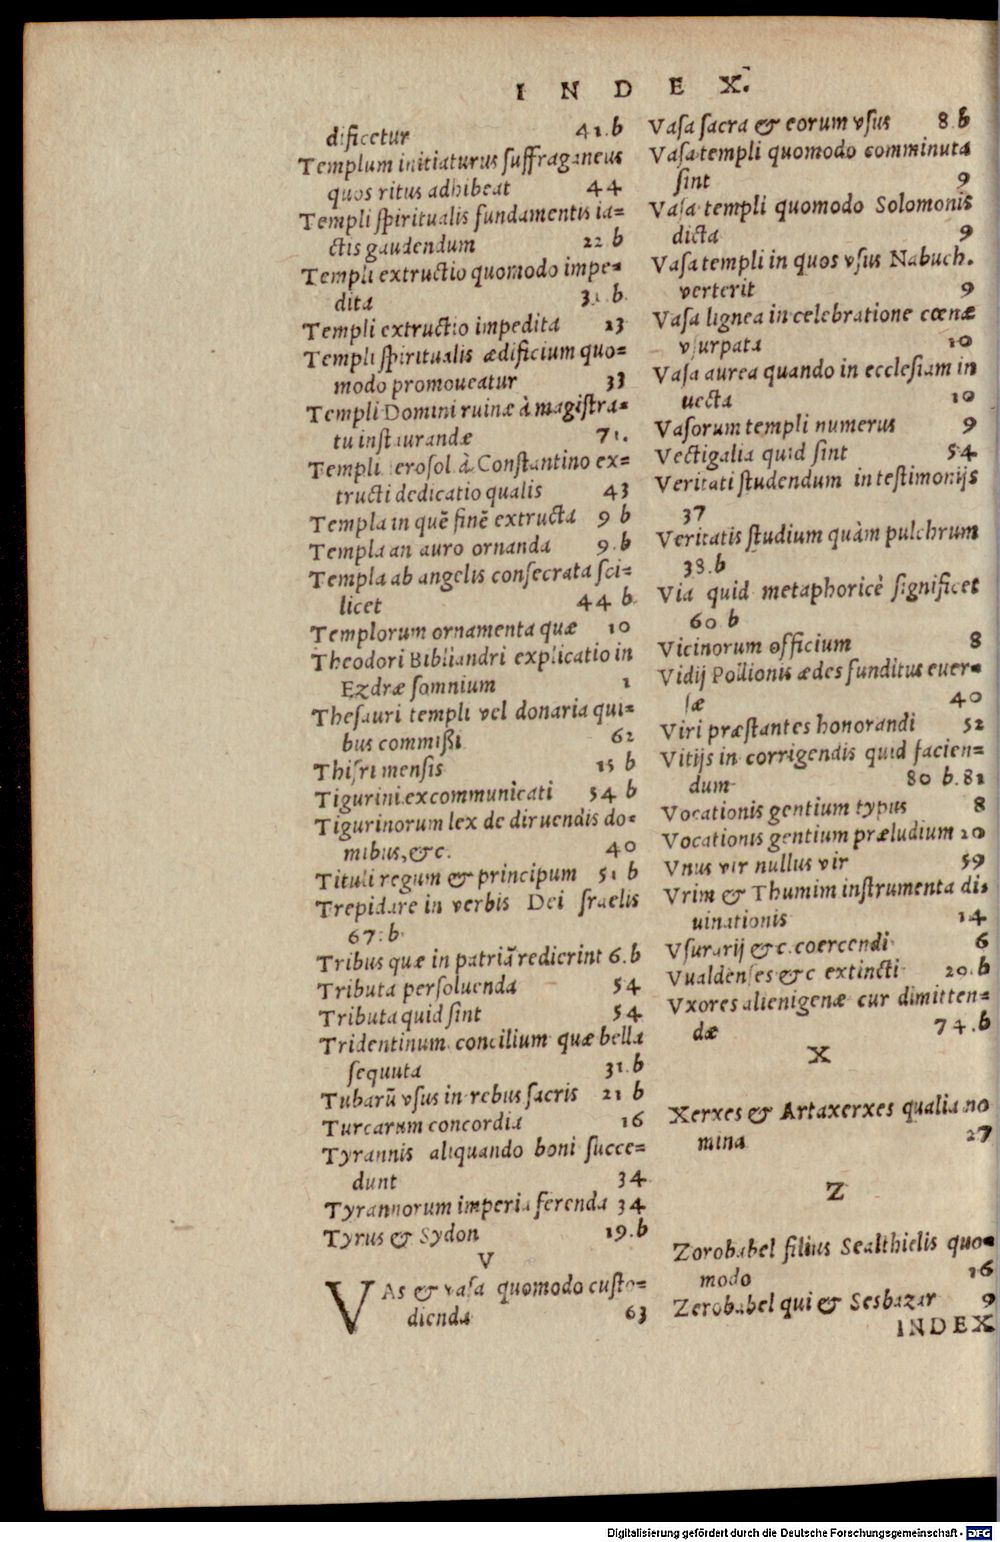 INDEX.
dificetur 41.b
Templum initiaturus suffraganeus
quos ritus adhibeat 44
Templi spiritualis fundamentis ia=
ctis gaudendum 22 b
Templi extructio quomodo impe=
dita 31.b.
Templi extructio impedita 23
Templi spiritualis ædificium quo=
modo promoueatur 33
Templi Domini ruinæ à magistra=
tu instaurandæ 71.
Templi erosol à Constantino ex=
tructi dedicatio qualis 43
Templa in quē finē extructa 9 b
Templa an auro ornanda 9.b
Templa ab angelis consecrata sci=
licet 44 b.
Templorum ornamenta quæ 10
Theodori Bibliandri explicatio in
Ezdræ somnium 1
Thesauri templi vel donaria qui=
bus commißi 62
Thisri mensis 15 b
Tigurini excommunicati 54 b
Tigurinorum lex de diruendis do=
mibus, &c. 40
Tituli regum & principum 51 b
Trepidare in verbis Dei sraelis
67.b.
Tribus quæ in patriā redierint 6.b
Tributa persoluenda 54
Tributa quid sint 54
Tridentinum concilium quæ bella
sequuta 31.b
Tubarū vsus in rebus sacris 21 b
Turcarum concordia 16
Tyrannis aliquando boni succe=
dunt 34
Tyrannorum imperia ferenda 34
Tyrus & Sydon 19.b
V
VAs & vasa quomodo custo=
dienda 63
Vasa sacra & eorum vsus 8.b
Vasa templi quomodo comminuta
sint 9
Vasa templi quomodo Solomonis
dicta 9
Vasa templi in quos vsus Nabuch.
verterit 9
Vasa lignea in celebratione cœnæ
vsurpata 10
Vasa aurea quando in ecclesiam in
uecta 10
Vasorum templi numerus 9
Vectigalia quid sint 54
Veritati studendum in testimonijs
37
Veritatis studium quàm pulchrum
38.b
Via quid metaphoricè significet
60 b
Vicinorum officium 8
Vidij Pollionis ædes funditus euer=
sæ 40
Viri præstantes honorandi 52
Vitijs in corrigendis quid facien=
dum 80 b.81
Vocationis gentium typus 8
Vocationis gentium præludium 20
Vnus vir nullus vir 59
Vrim & Thumim instrumenta di=
uinationis 14
Vsurarij &c. coercendi 6
Vualdenses &c extincti 20.b
Vxores alienigenæ cur dimitten=
dæ 74.b
X
Xerxes & Artaxerxes qualia no
mina 27
Z
Zorobabel filius Sealthielis quo=
modo 16
Zerobabel qui & Sesbazar 9
INDEX
Digitalisierung gefördert durch die Deutsche Forschungsgemeinschaft - DFG